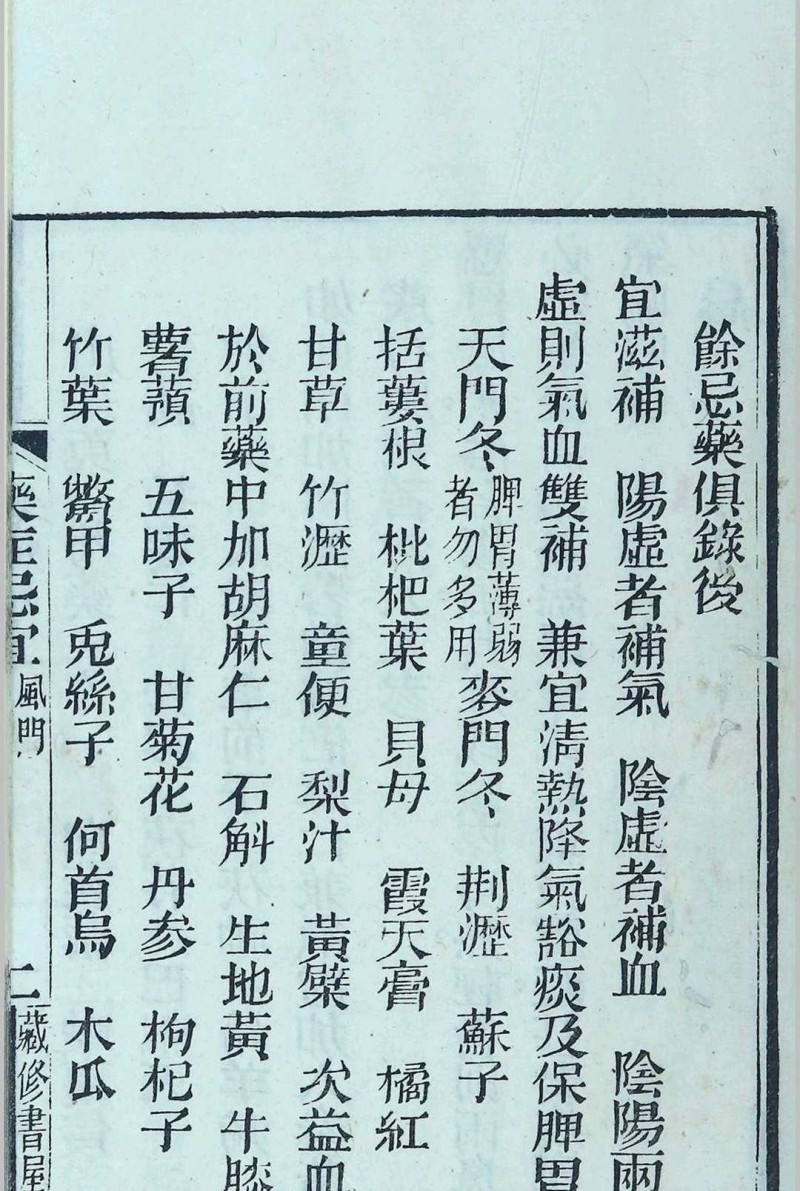 餘忌藥俱錄後
宜滋補　陽虛者補氣　陰虛者補血　陰陽兩
虛則氣血雙補　兼宜淸熱降氣豁痰及保脾胃
天門冬脾胃薄弱者勿多用麥門冬　荆瀝　蘇子
括蔞根　枇杷葉　貝母　霞天膏　橘紅
甘草　竹瀝　童便　梨汁　黃檗　次益血
於前藥中加胡麻仁　石斛　生地黃　牛膝
薯蕷　五味子　甘菊花　丹参　枸杞子
竹葉　鱉甲　兎絲子　何首烏　木瓜
藥症忌宜　風門　二　藏修書屋